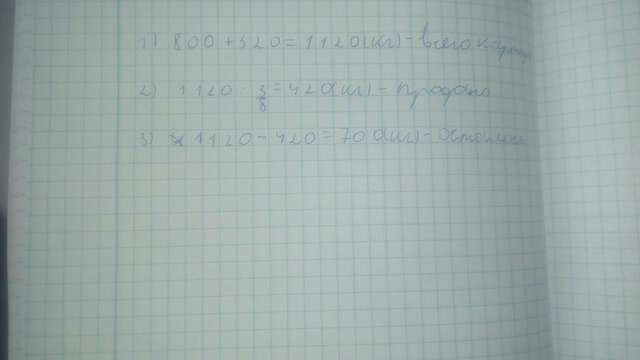 1) 800 + 320 = 1120 (кг) - всего картоф
2) 1120 · 3/8 = 420 (кг) - продано
3) 1120 - 420 = 700 (кг) - Осталось